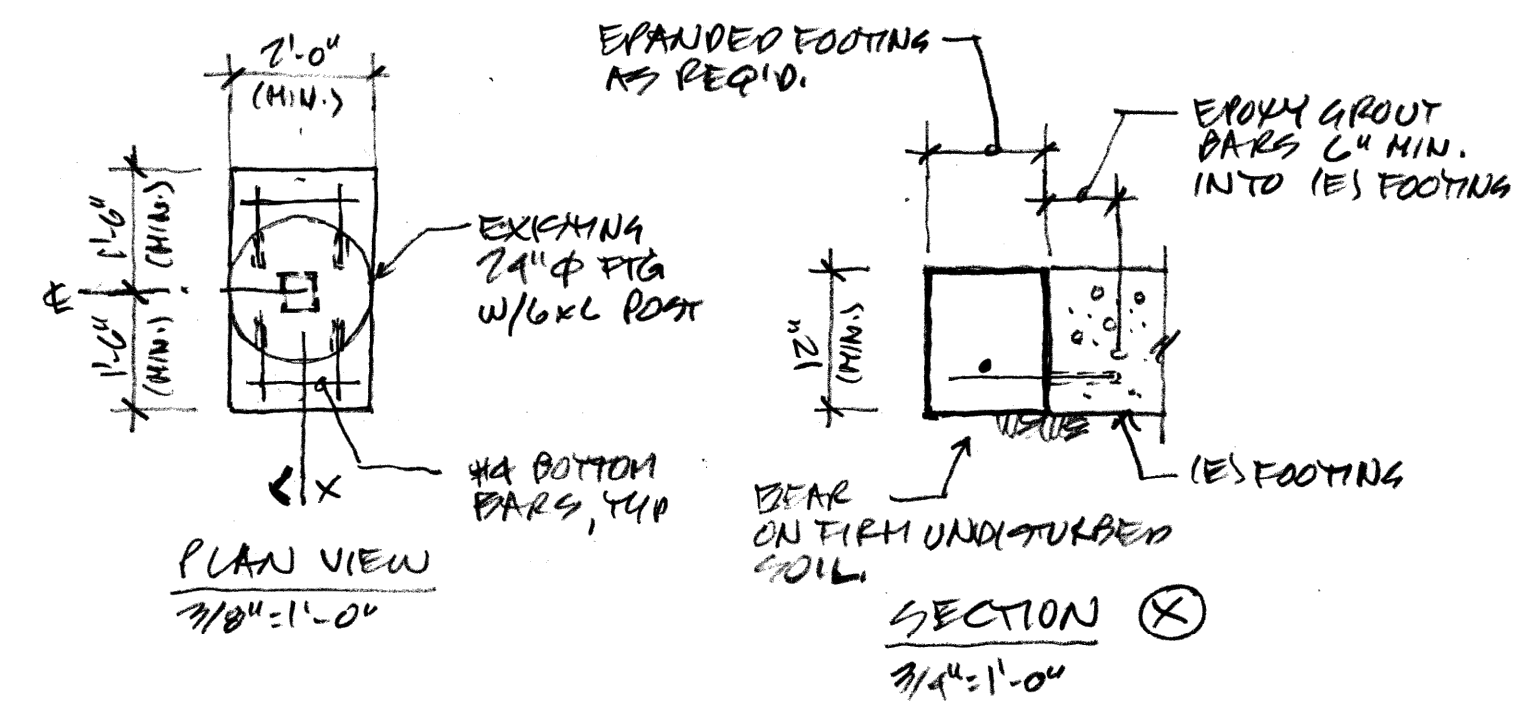 2'-0"
(MIN.)
1'-6"
(MIN.)
1'-6"
(MIN.)
EXISTING
24"Φ FTG
W/6x6 POST
#4 BOTTOM
BARS, TYP
X
PLAN VIEW
3/8"=1'-0"
EPANDED FOOTING
AS REQ'D.
EPOXY GROUT
BARS 6" MIN.
INTO (E) FOOTING
12"
(MIN.)
(E) FOOTING
BEAR
ON FIRM UNDISTURBED
SOIL.
SECTION X
3/4"=1'-0"